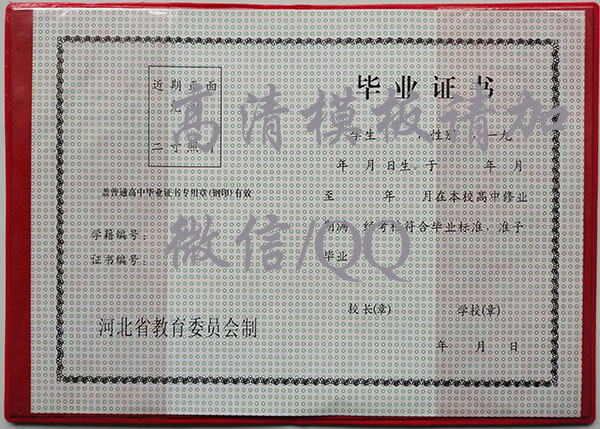 近期正面
二寸照片
盖普通高中毕业证书专用章(钢印)有效
学籍编号:
证书编号:
河北省教育委员会制
毕业证书
学生 性别 一九
年 月 日生, 于 年 月
至 年 月在本校高中修业
期满, 经考核符合毕业标准, 准予
毕业
校长(章) 学校(章)
年 月 日
高清模板请加
微信/QQ